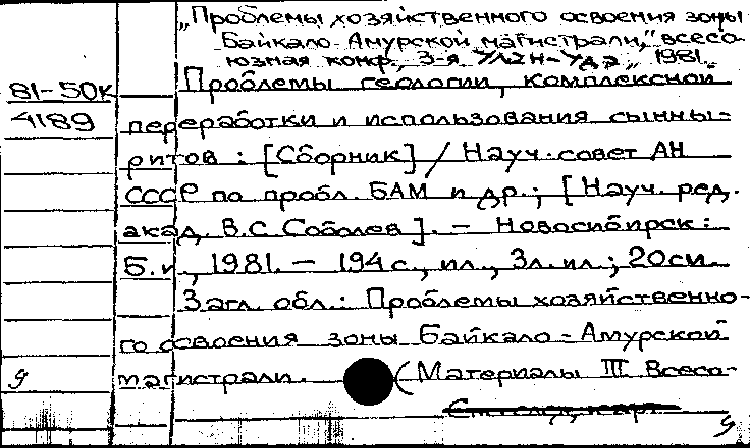 „Проблемы хозяйственного освоения зоны
Байкало-Амурской магистрали," всесо-
юзная конф., 3-я. Улан-Удэ, 1981.
81-50К
4189
Проблемы геологии, комплексной
переработки и использования сынны-
ритов : [Сборник] / Науч. совет АН
СССР по пробл. БАМ и др.; [Науч. ред.
акад. В.С. Соболев]. — Новосибирск:
Б.и., 1981. — 194 с., ил., 3 л. ил.; 20 см.
Загл. обл.: Проблемы хозяйственно-
го освоения зоны Байкало-Амурской
магистрали. (Материалы III Всесо-